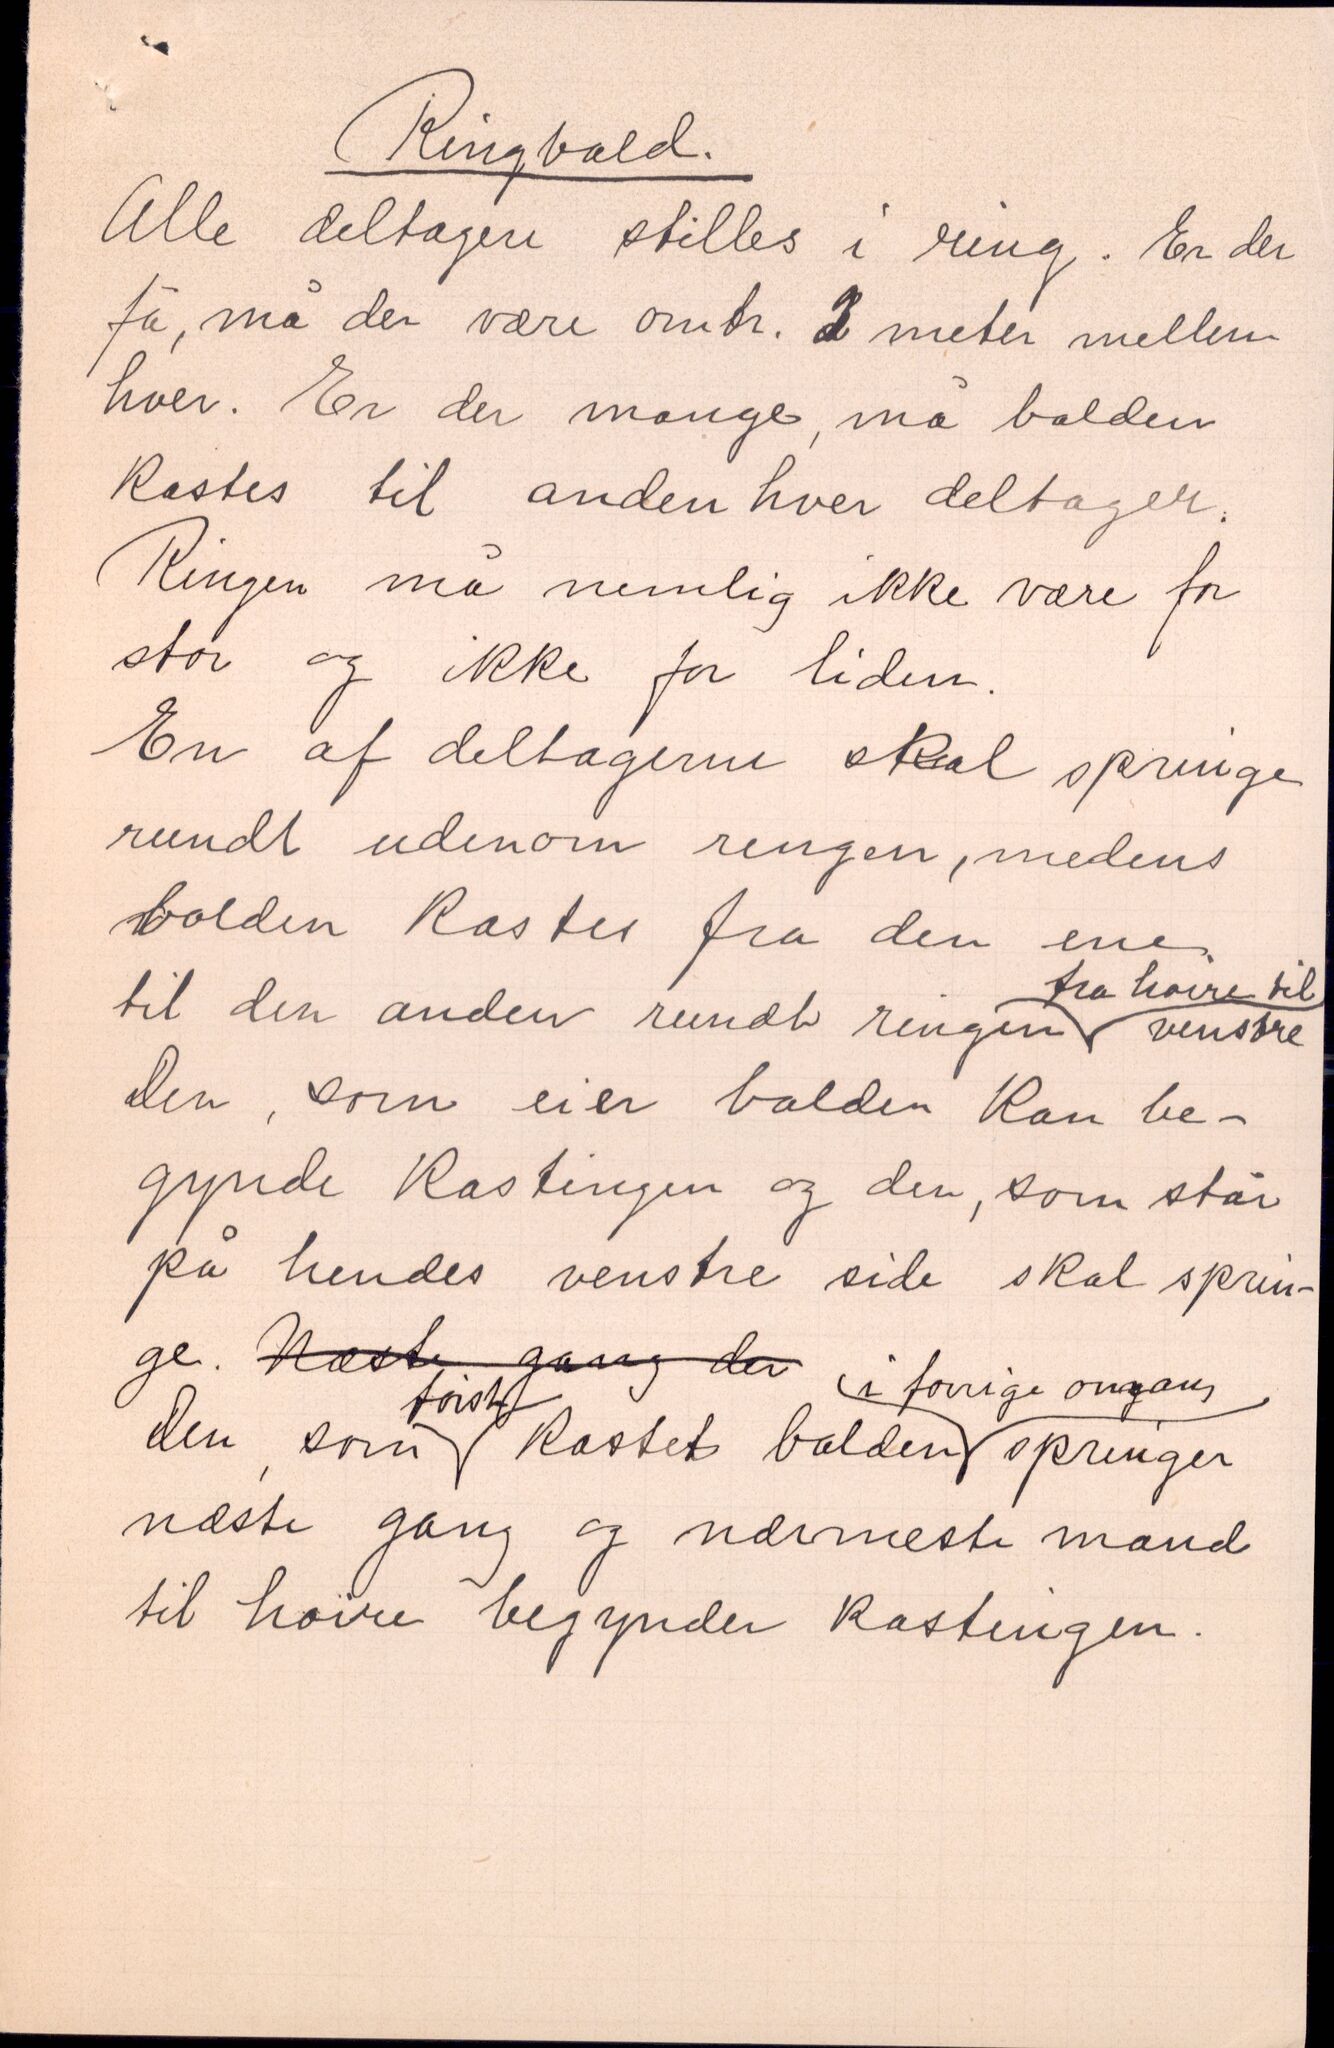 Ringbald.
Alle deltagere stilles i ring. Er der
få, må der være omtr. 2 meter mellem
hver. Er der mange, må balden
kastes til anden hver deltager.
Ringen må nemlig ikke være for
stor og ikke for liden.
En af deltagerne skal springe
rundt udenom ringen, medens
balden kastes fra den ene
fra høire til
til den anden rundt ringen venstre
Den, som eier balden kan be-
gynde kastingen og den, som står
på hendes venstre side skal sprin-
ge. Næste gang der i forrige omgang
først
Den, som kastet balden springer
næste gang og nærmeste mand
til høire begynder kastingen.